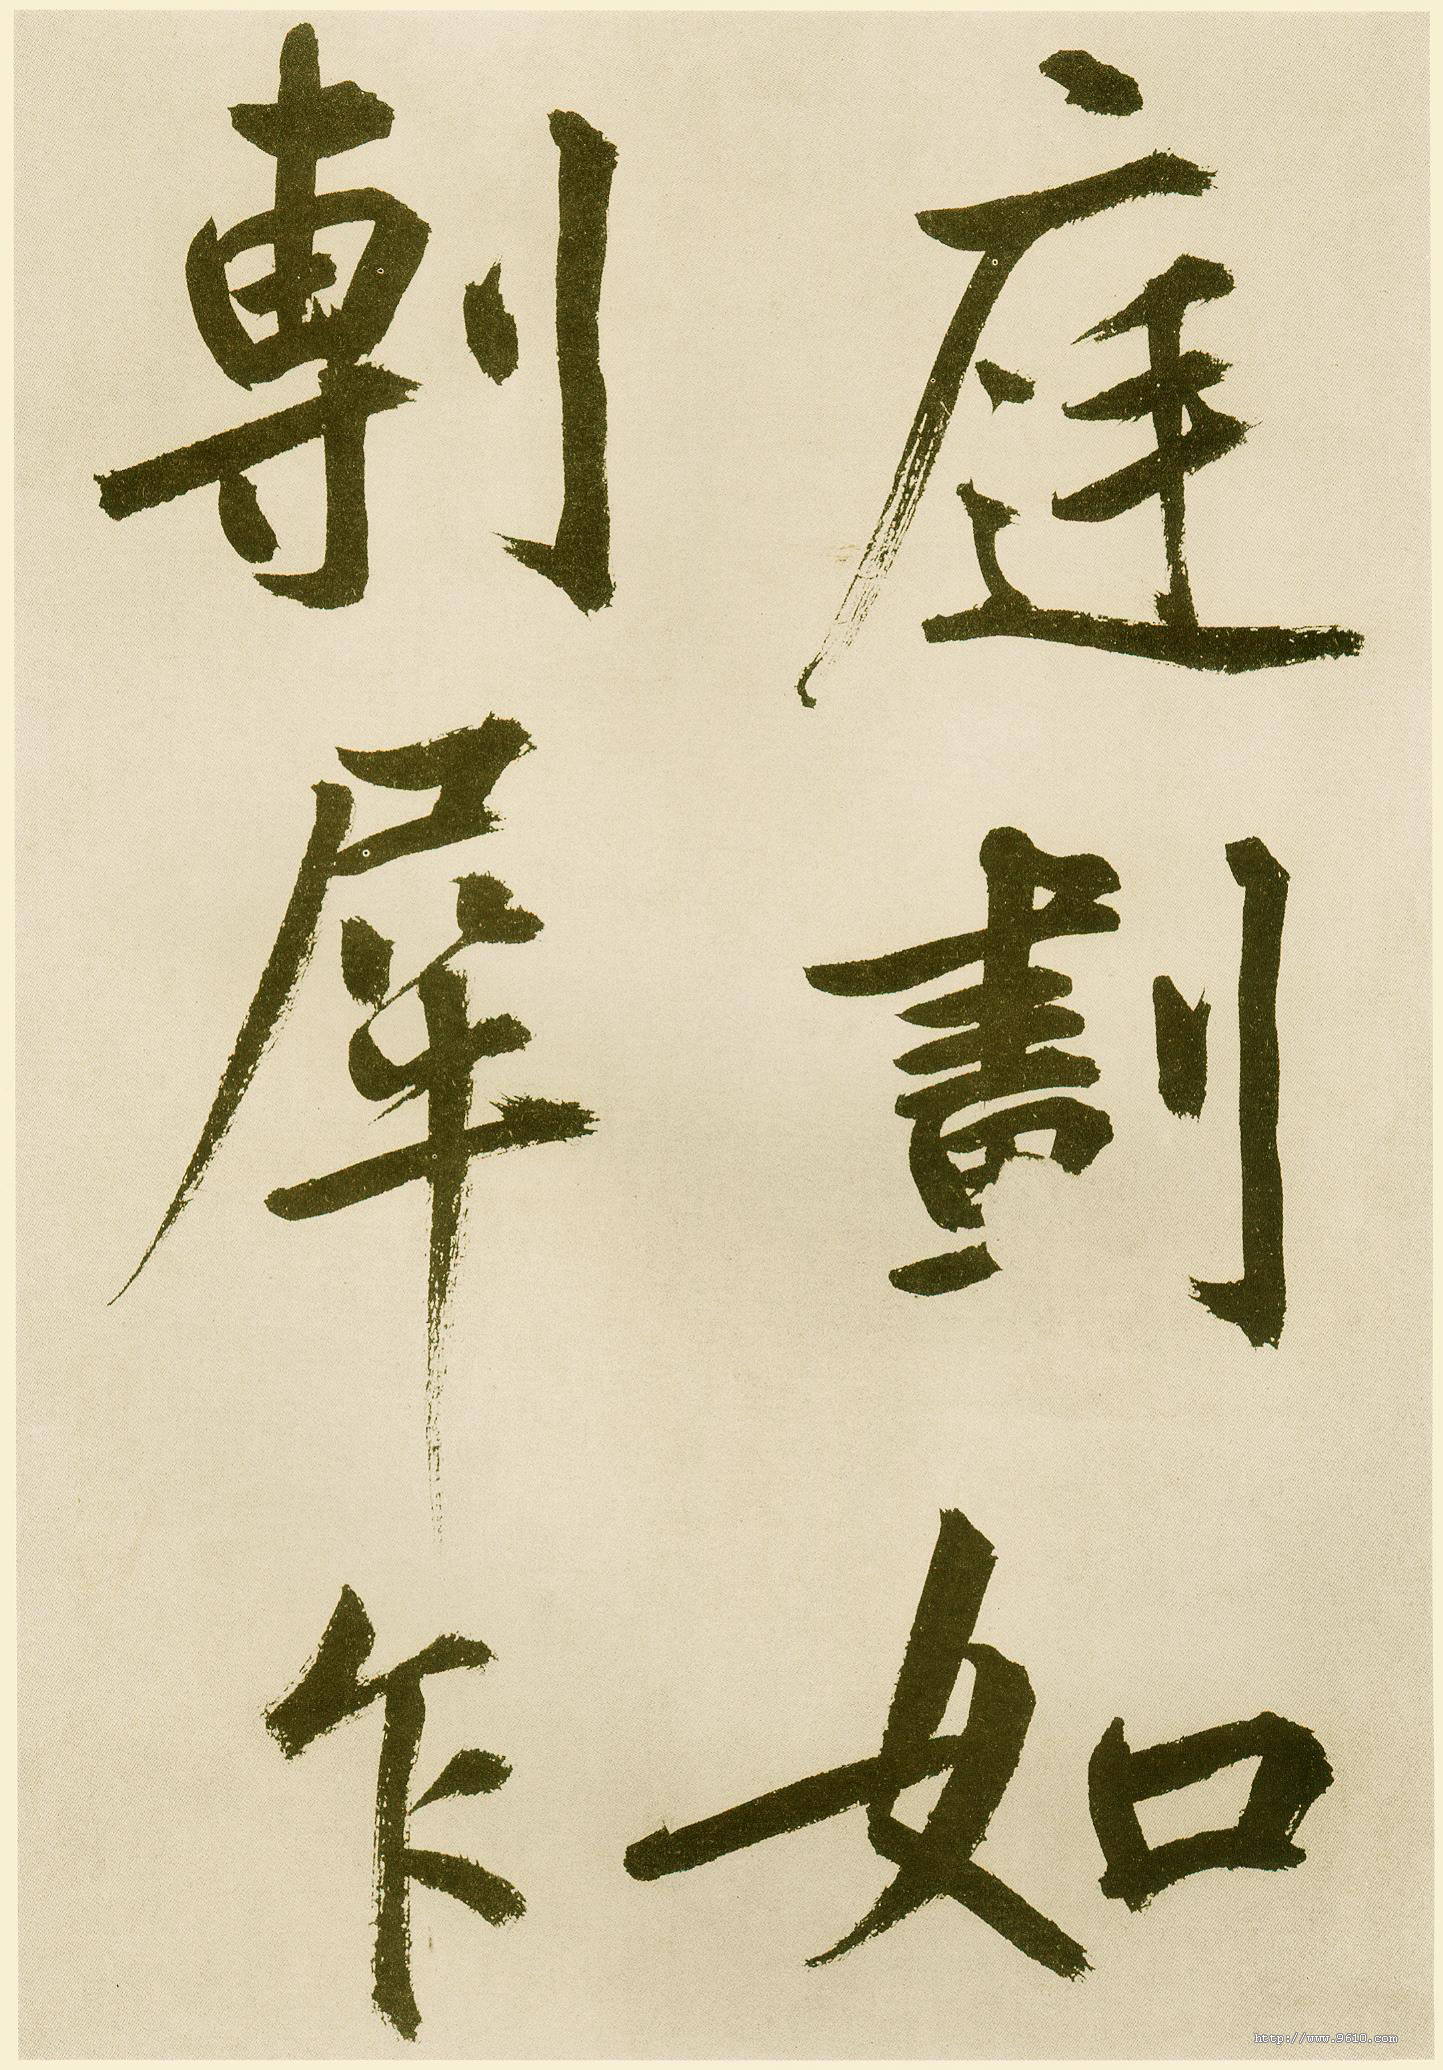 庭劃如
剸犀乍
http://www.9610.com